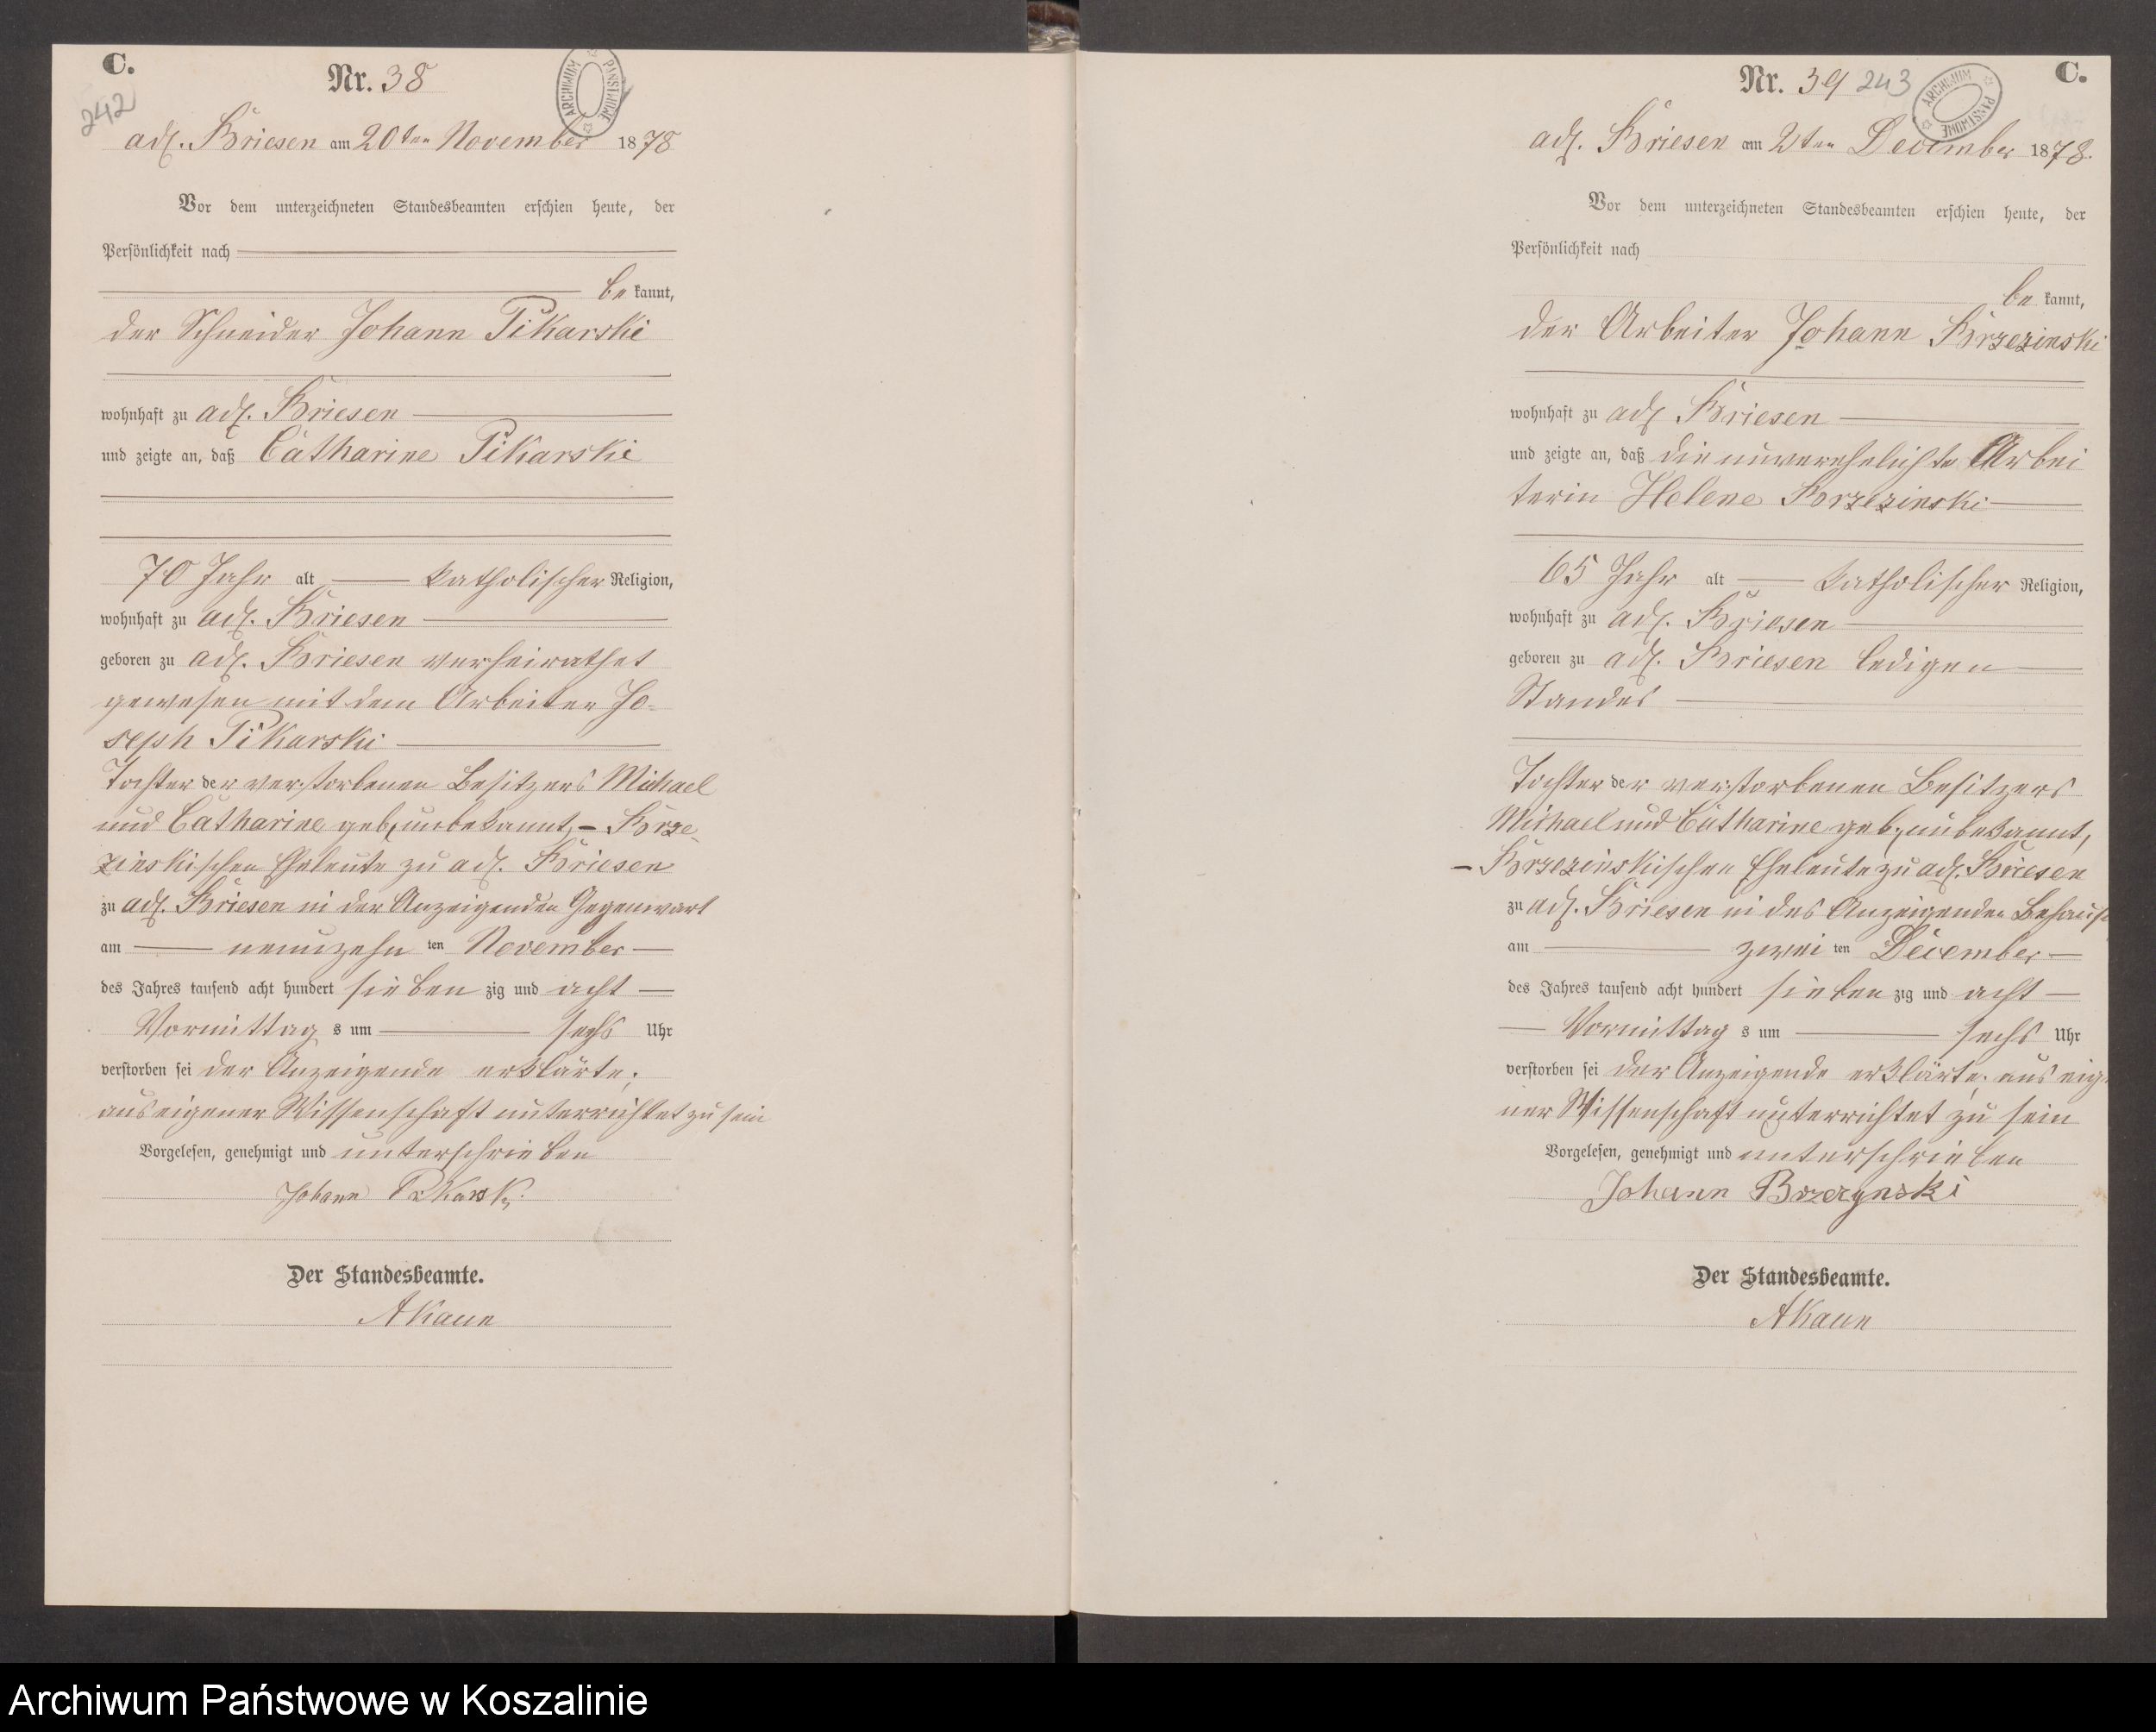 C.
242
Nr. 38
ARCHIWUM PAŃSTWOWE
adl. Briesen am 20ten November 1878
Vor dem unterzeichneten Standesbeamten erschien heute, der
Persönlichkeit nach
be kannt,
der Schneider Johann Pikarski
wohnhaft zu adl. Briesen
und zeigte an, daß Catharine Pikarski
70 Jahr alt katholischer Religion,
wohnhaft zu adl. Briesen
geboren zu adl. Briesen verheirathet
gewesen mit dem Arbeiter Jo-
seph Pikarski
Tochter der verstorbenen Besitzers Michael
und Catharine geb, unbekannt, - Brze-
zinskischen Eheleute zu adl. Briesen
zu adl. Briesen in der Anzeigenden Gegenwart
am neunzehn ten November
des Jahres tausend acht hundert sieben zig und acht
Vormittag s um sechs Uhr
verstorben sei der Anzeigende erklärte;
aus eigener Wissenschaft unterrichtet zu sein
Vorgelesen, genehmigt und unterschrieben
Johann
Der Standesbeamte.
AKaun
C.
Nr. 39 243
ARCHIWUM PAŃSTWOWE
adl. Briesen am 2ten December 1878.
Vor dem unterzeichneten Standesbeamten erschien heute, der
Persönlichkeit nach
be kannt,
der Arbeiter Johann Brzezinski
wohnhaft zu adl Briesen
und zeigte an, daß die unverehelichte Arbei
terin Helene Brzezinski
65 Jahr alt katholischer Religion,
wohnhaft zu adl. Briesen
geboren zu adl. Briesen ledigen
Standes
Tochter der verstorbenen Besitzers
Michael und Catharine geb, unbekannt,
- Brzezinskischen Eheleute zu adl. Briesen
zu adl. Briesen in des Anzeigenden Behaus
am zwei ten December
des Jahres tausend acht hundert sieben zig und acht
Vormittag s um sechs Uhr
verstorben sei der Anzeigende erklärte; aus eig
ner Wissenschaft unterrichtet zu sein
Vorgelesen, genehmigt und unterschrieben
Johann Brzezynski
Der Standesbeamte.
AKaun
Archiwum Państwowe w Koszalinie